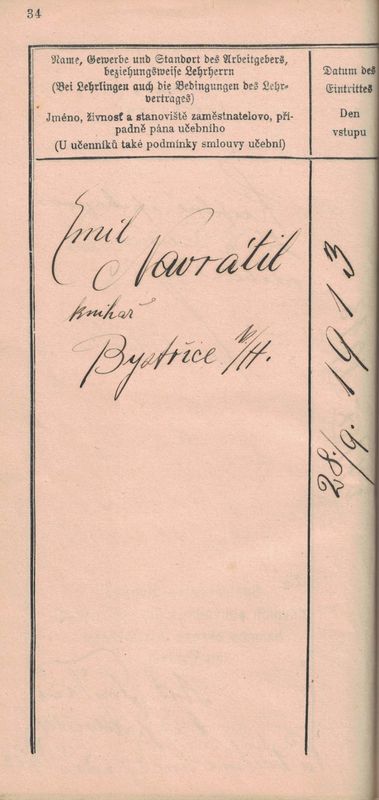 34
Name, Gewerbe und Standort des Arbeitgebers,
beziehungsweise Lehrherrn
(Bei Lehrlingen auch die Bedingungen des Lehr-
vertrages)
Jméno, živnosť a stanoviště zaměstnatelovo, pří-
padně pána učebního
(U učenníků také podmínky smlouvy učební)
Datum des
Eintrittes
Den
vstupu
Emil
Navrátil
knihař
Bystřice p/H.
28./9. 1913